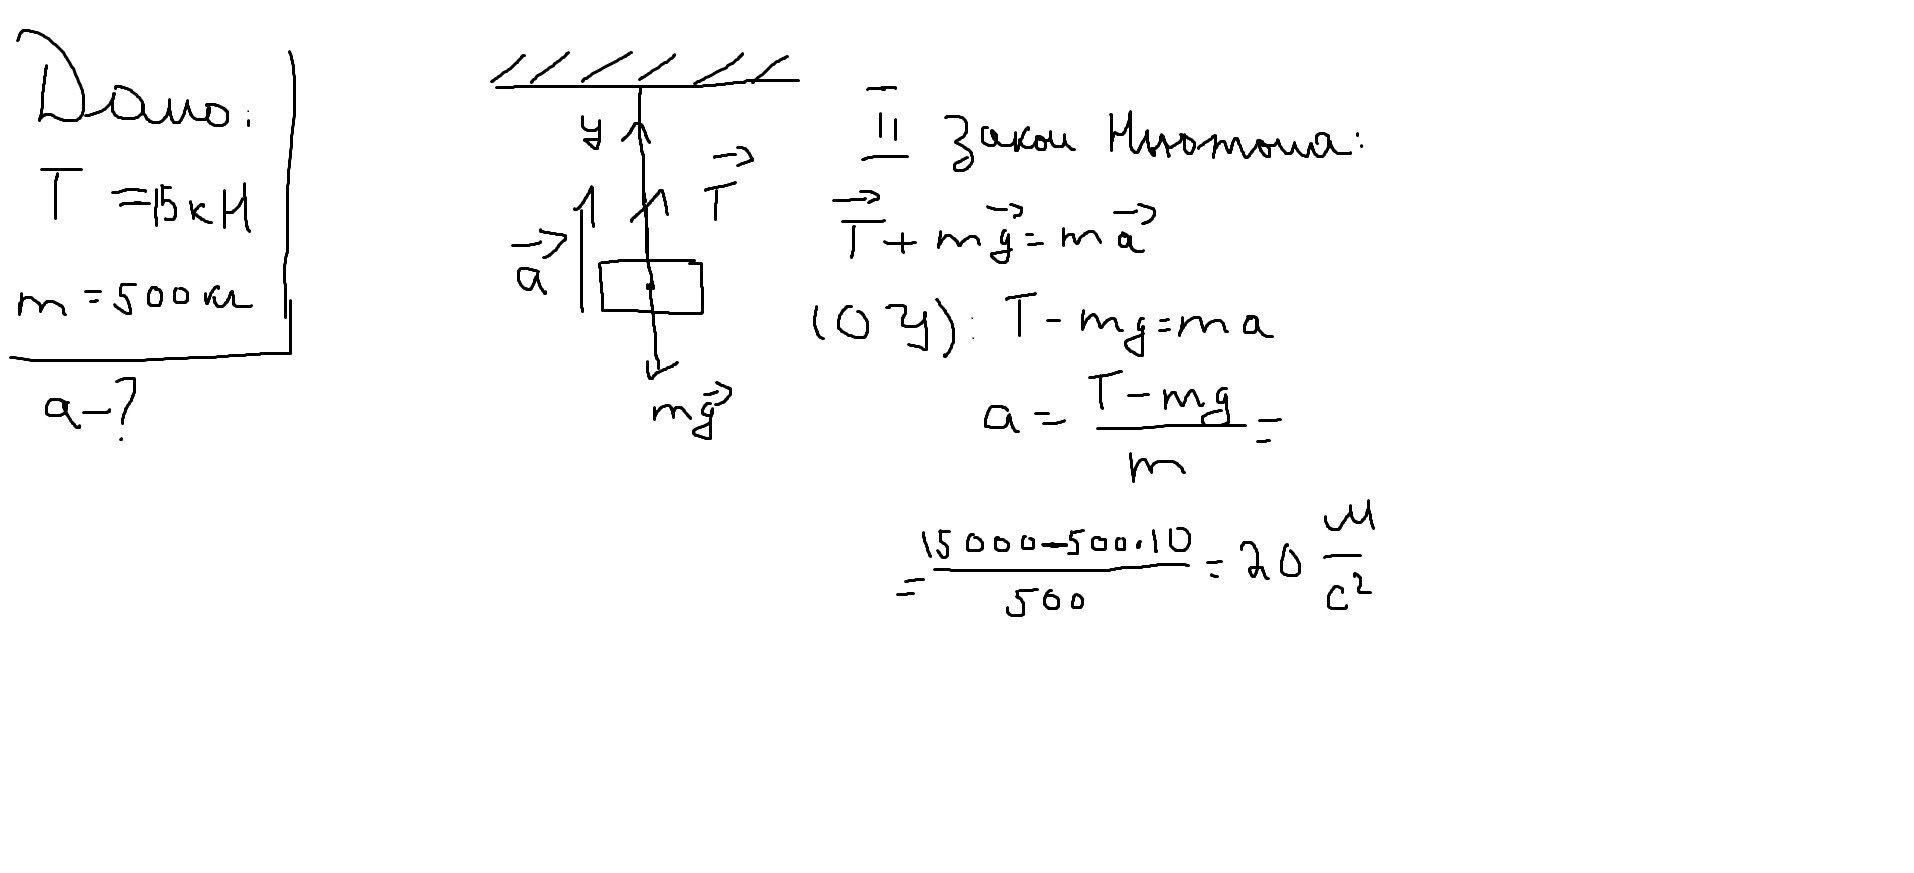 Дано:
T = 15 кН
m = 500 кг
a - ?
y
T
a
mg
II Закон Ньютона:
T + mg = ma
(OY): T - mg = ma
a = (T - mg)/m =
= (15000 - 500·10)/500 = 20 м/с²